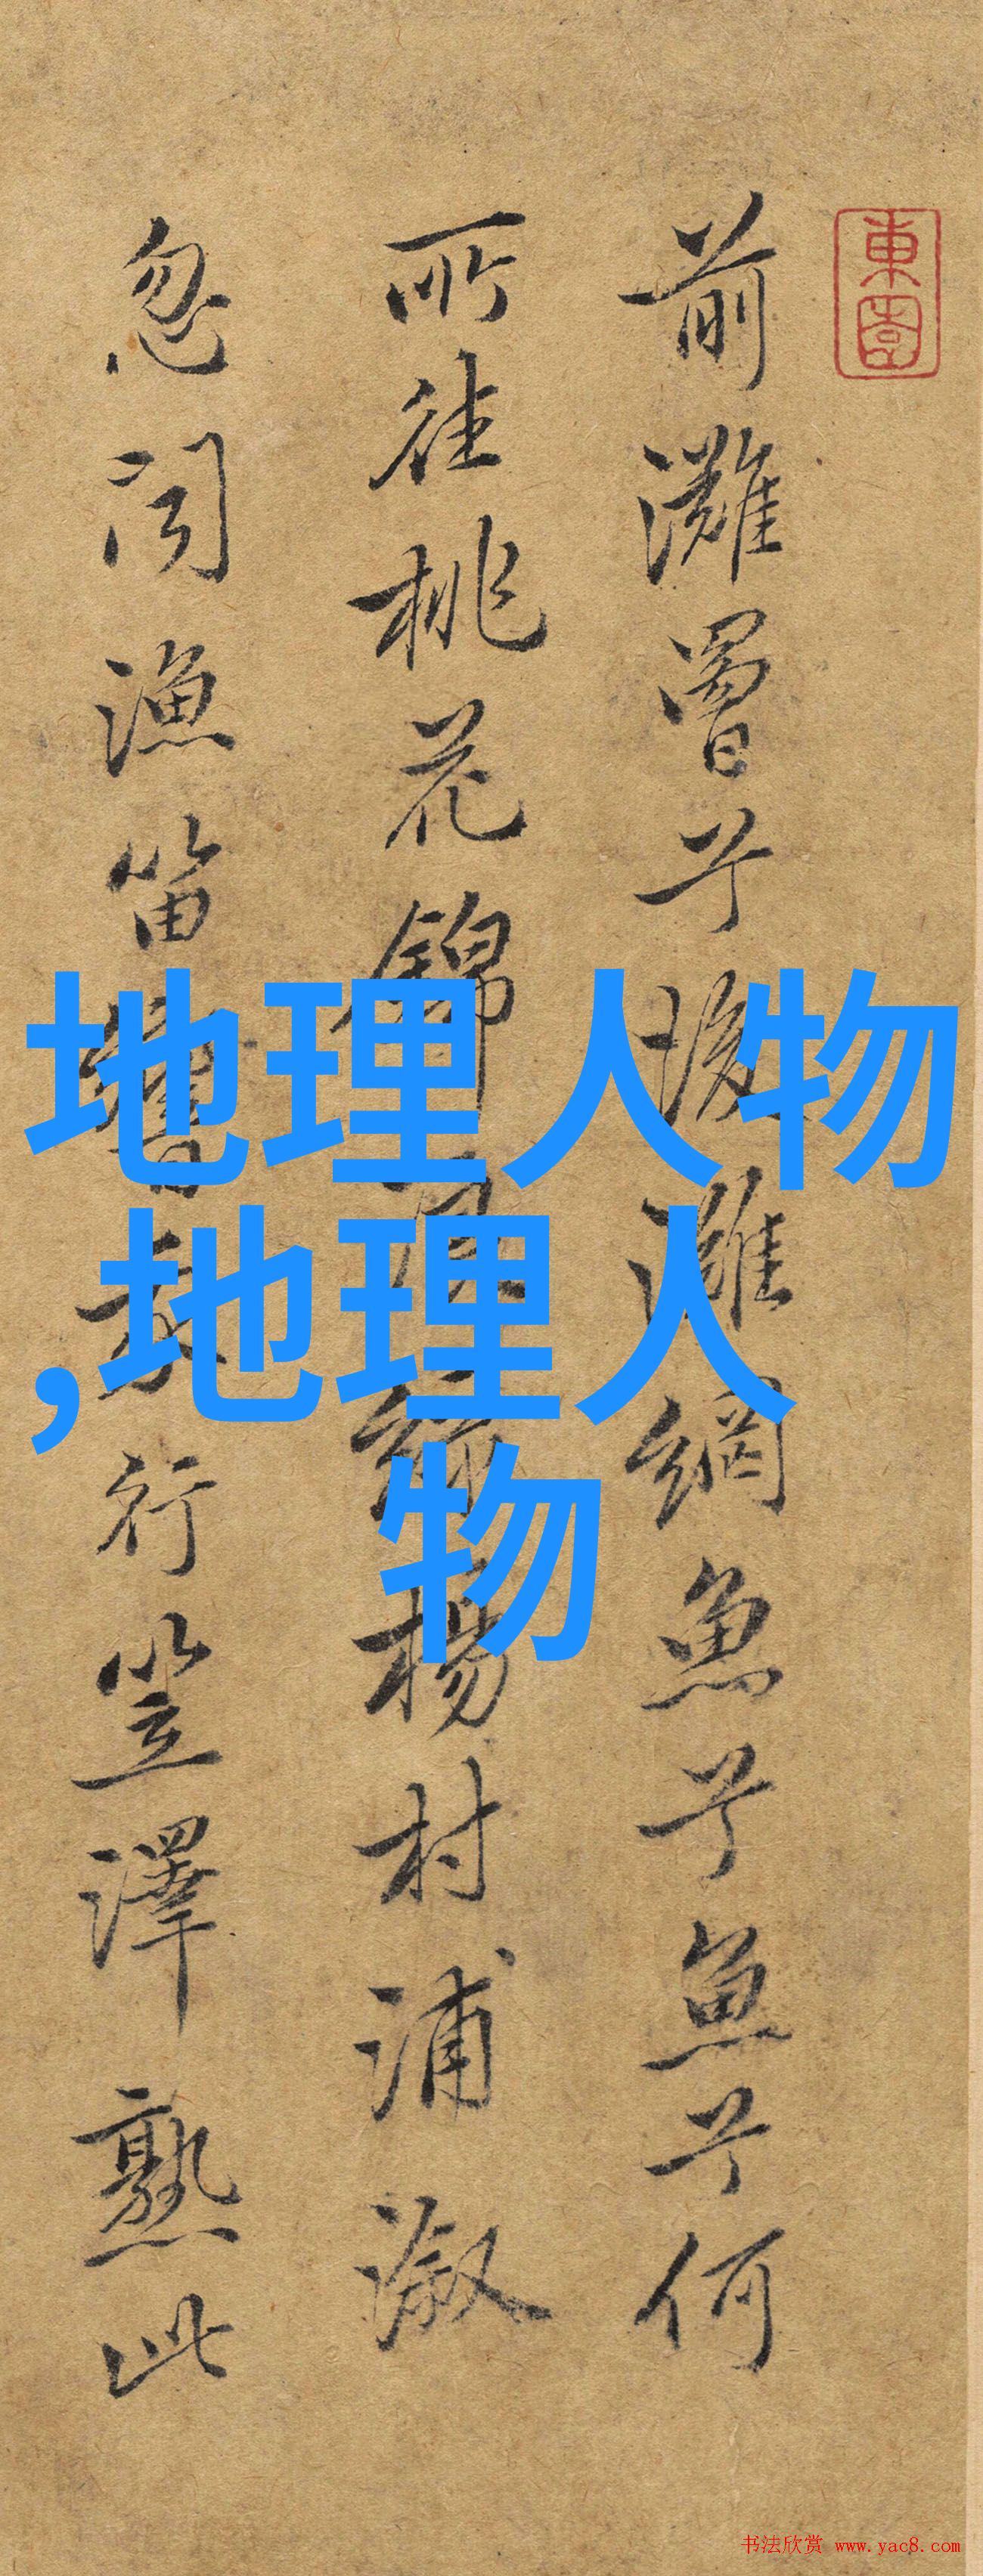 東園
前灘罾兮後灘網魚兮魚兮何
所往桃花錦綠楊村浦溆
忽聞漁笛響行笠澤熟此
地理人物
,地理人
物
书法欣赏 www.yac8.com